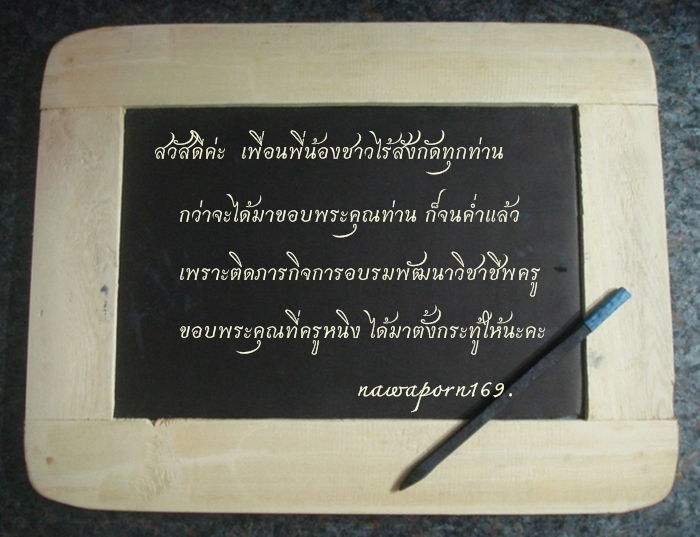 สวัสดีค่ะ เพื่อนพี่น้องชาวไร้สังกัดทุกท่าน
กว่าจะได้มาขอบพระคุณท่าน ก็จนค่ำแล้ว
เพราะติดภารกิจการอบรมพัฒนาวิชาชีพครู
ขอบพระคุณที่ครูหนิง ได้มาตั้งกระทู้ให้นะคะ
nawaporn169.